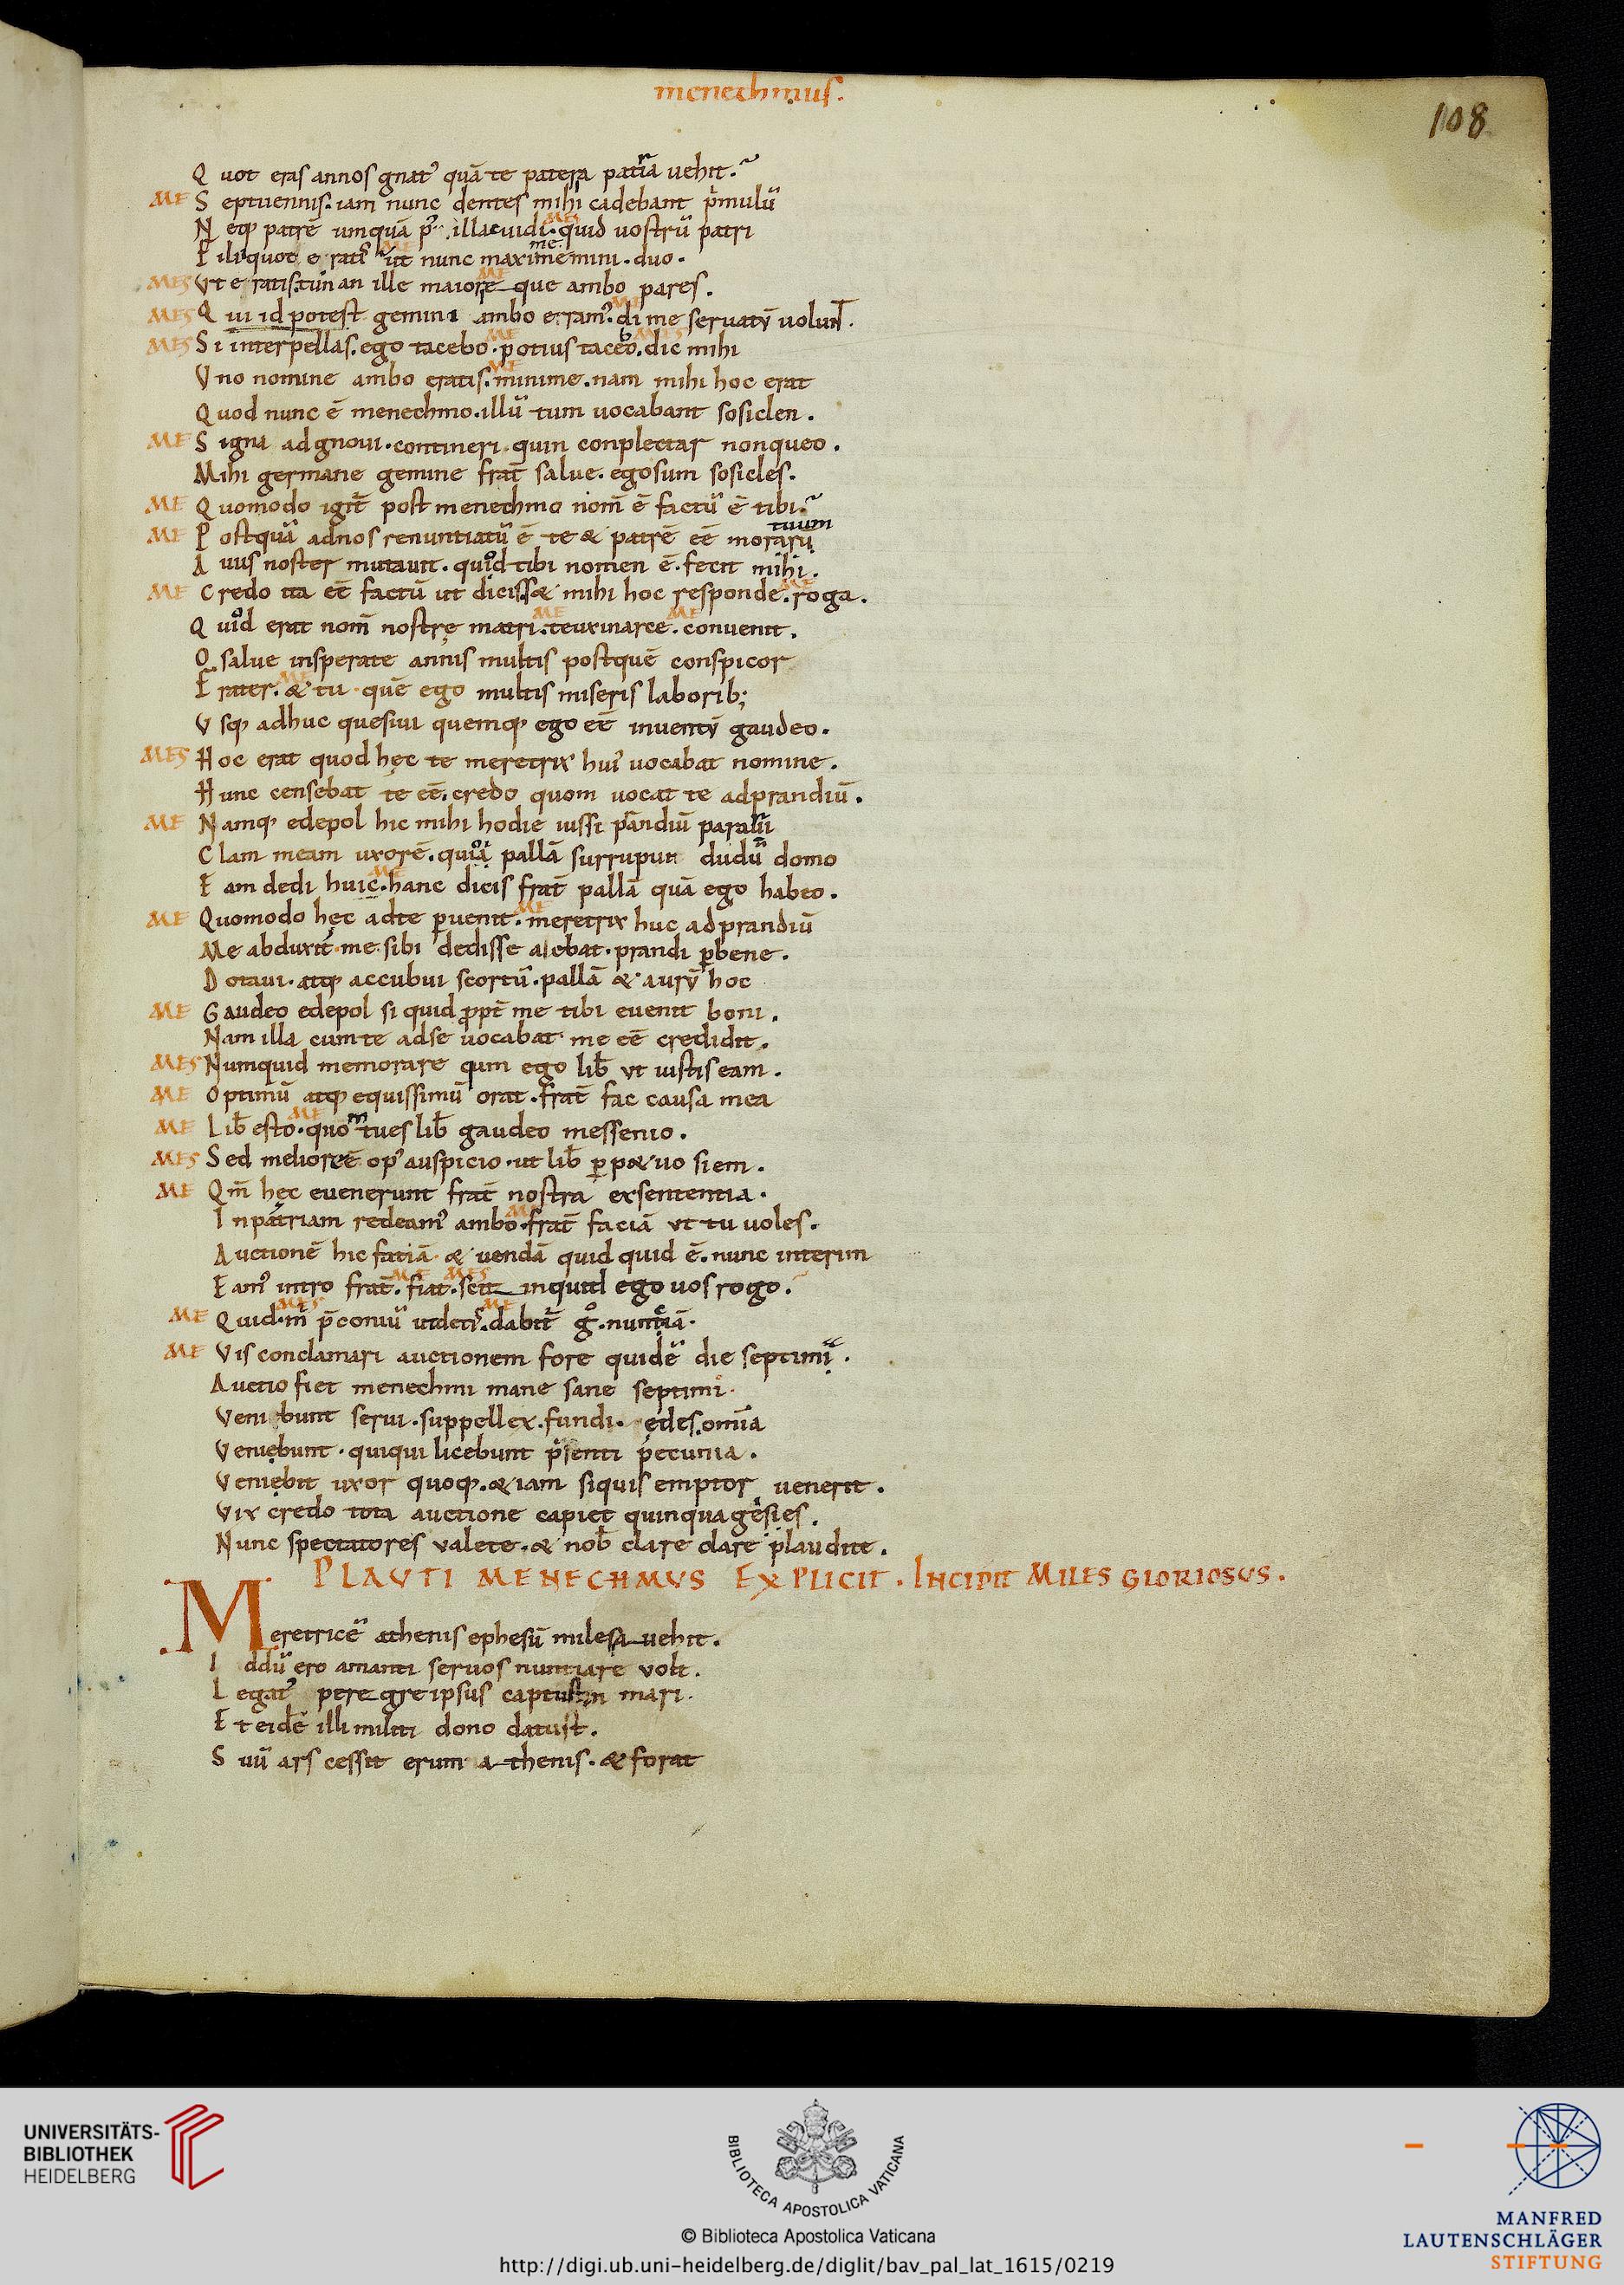 menechmus.
108
Q uot eras annos gnat᾽ quā te patera patria uehit.
ME S eptuennis. iam nunc dentes mihi cadebant pͥmulū
N eqꝫ patrē umquā p᾽ illac uidi. MES quid uostrū patri
F ilii quot eratis ME ut nunc maxime memini. duo.
MES Vt eratis. tun an ille maior ME eque ambo pares.
MES Q ui id potest gemini ambo eram᾽. ME di me seruatū uolunt.
MES Si interpellas. ego tacebo. ME potius tacebo. MES dic mihi
V no nomine ambo eratis. ME minime. nam mihi hoc erat
Q uod nunc ē menechmo. illū tum uocabant sosiclen.
ME S igna adgnoui. contineri quin conplectar nonqueo.
Mihi germane gemine frat̄ salue. egosum sosicles.
ME Q uomodo igit̄ post menechmo nom̄ ē factū ē tibi.
ME P ostquā adnos renuntiatū ē te & patrē eē mortuum
A uus noster mutauit. quod tibi nomen ē. fecit mihi.
ME Credo ita eē factū ut dicis. s& mihi hoc responde. ME roga.
Q uid erat nom̄ nostrę matri. ME teuximarce. ME conuenit.
O salue insperate annis multis postquē conspicor
F rater. ME & tu quē ego multis miseris laborib;
V sqꝫ adhuc quesiui quemqꝫ ego eē inuentū gaudeo.
MES Hoc erat quod hęc te meretrix hui᾽ uocabat nomine.
Hunc censebat te eē. credo quom uocat te adprandiū.
ME Namqꝫ edepol hic mihi hodie iussi prandiū parari
Clam meam uxorē. quoi pallā surrupui dudū domo
E am dedi huic. ME hanc dicis frat̄ pallā quā ego habeo.
ME Quomodo hęc adte ꝑuenit. ME meretrix huc adprandiū
Me abduxit. me sibi dedisse aiebat. prandi ꝑbene.
Potaui. atqꝫ accubui scortū. pallā & aurū hoc
ME Gaudeo edepol si quid ꝓpt̄ me tibi euenit boni.
Nam illa cumte adse uocabat me eē credidit.
MES Numquid memorare qum ego lib̄ ut iustis eam.
ME Optimū atqꝫ equissimū orat. frat̄ fac causa mea
ME Lib̄ esto. ME quom tu es lib̄ gaudeo messenio.
MES Sed meliore ē op᾽ auspicio. ut lib̄ ꝑp&uo siem.
ME Qm̄ hęc euenerunt frat̄ nostra exsententia.
I npatriam redeam᾽ ambo. ME frat̄ faciā ut tu uoles.
Auctionē hic fatiā & uendā quid quid ē. nunc interim
Eam᾽ intro frat̄. ME fiat. MES scit inquid ego uos rogo.
ME Quid. MES m̄ p̄coniū ut det᾽. ME dabit̄ gͦ. nunciā.
ME Vis conclamari auctionem fore quidē die septimi.
Auctio fiet menechmi mane sane septimi.
Veni bunt serui. suppellex. fundi. ędes. omīa
Veniębunt. quiqui licebunt pͥsenti pecunia.
Veniębit uxor quoqꝫ. &iam siquis emptor uenerit.
Vix credo tota auctione capiet quinquagesies.
Nunc spectatores valete. & nob̄ clare clare plaudite.
PLAVTI MENECHMVS EXPLICIT. INCIPIT MILES GLORIOSUS.
Meretricē athenis ephesū miles a uehit.
I ddū ero amanti seruos nuntiare volt.
L egat᾽ peregre ipsus captust in mari.
E teidē illi militi dono datust.
S uū ars cessit erum athenis. & forat
UNIVERSITÄTS-
BIBLIOTHEK
HEIDELBERG
BIBLIOTECA APOSTOLICA VATICANA
© Biblioteca Apostolica Vaticana
http://digi.ub.uni-heidelberg.de/diglit/bav_pal_lat_1615/0219
MANFRED
LAUTENSCHLÄGER
STIFTUNG